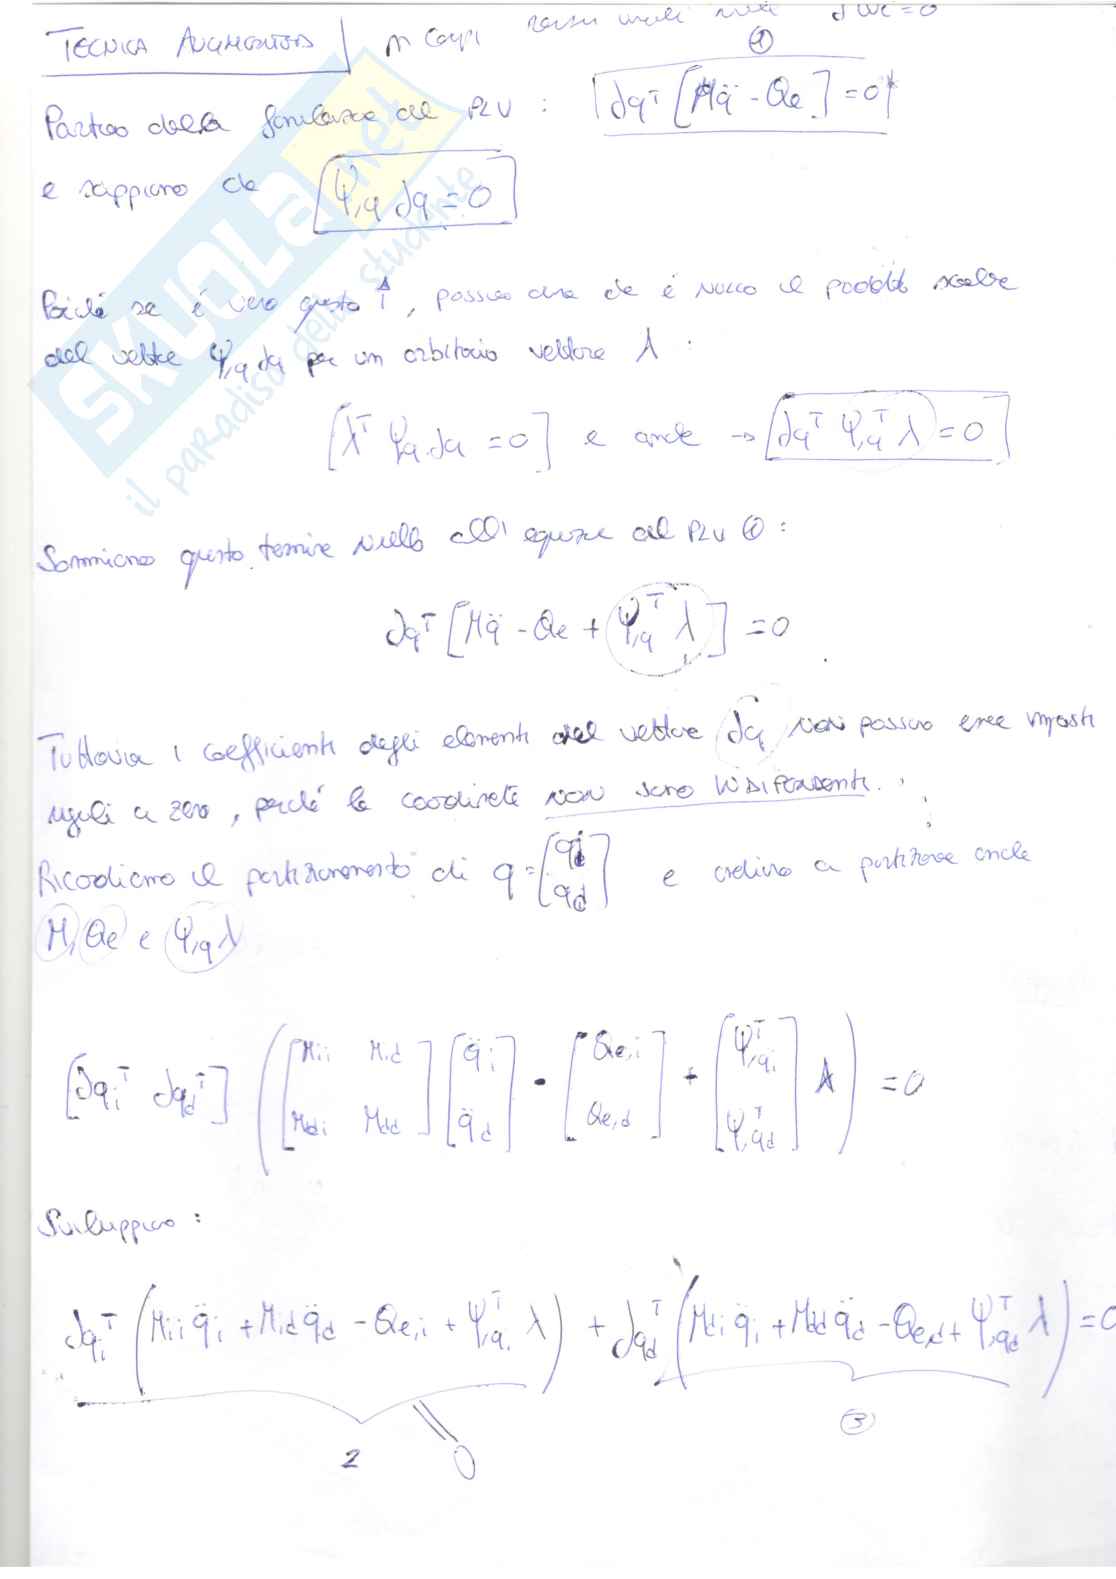 TECNICA AUGMENTED n corpi vincoli δWc = 0
①
Partiamo dalla formulazione del PLV : δqᵀ [Mq̈ - Qe] = 0
e sappiamo che Ψ,q δq = 0
Poiché se è vero questo ↑, possiamo dire che è nullo il prodotto scalare
del vettore Ψ,q δq per un arbitrario vettore λ :
[λᵀ Ψ,q δq = 0] e anche → δqᵀ Ψ,qᵀ λ = 0
Sommiamo questo termine nullo all'equazione del PLV ① :
δqᵀ [Mq̈ - Qe + Ψ,qᵀ λ] = 0
Tuttavia i coefficienti degli elementi del vettore δq non possono essere imposti
uguali a zero, perché le coordinate non sono INDIPENDENTI.
Ricordiamo il partizionamento di q = [qi qd] e andiamo a partizionare anche
M, Qe e Ψ,q λ
[δqiᵀ δqdᵀ] ([Mii Mid Mdi Mdd] [q̈i q̈d] - [Qe,i Qe,d] + [Ψ,qiᵀ Ψ,qdᵀ] λ) = 0
Sviluppiamo :
δqiᵀ (Mii q̈i + Mid q̈d - Qe,i + Ψ,qiᵀ λ) + δqdᵀ (Mdi q̈i + Mdd q̈d - Qe,d + Ψ,qdᵀ λ) = 0
2 = 0 ③
SKUOLA.net
il paradiso dello studente